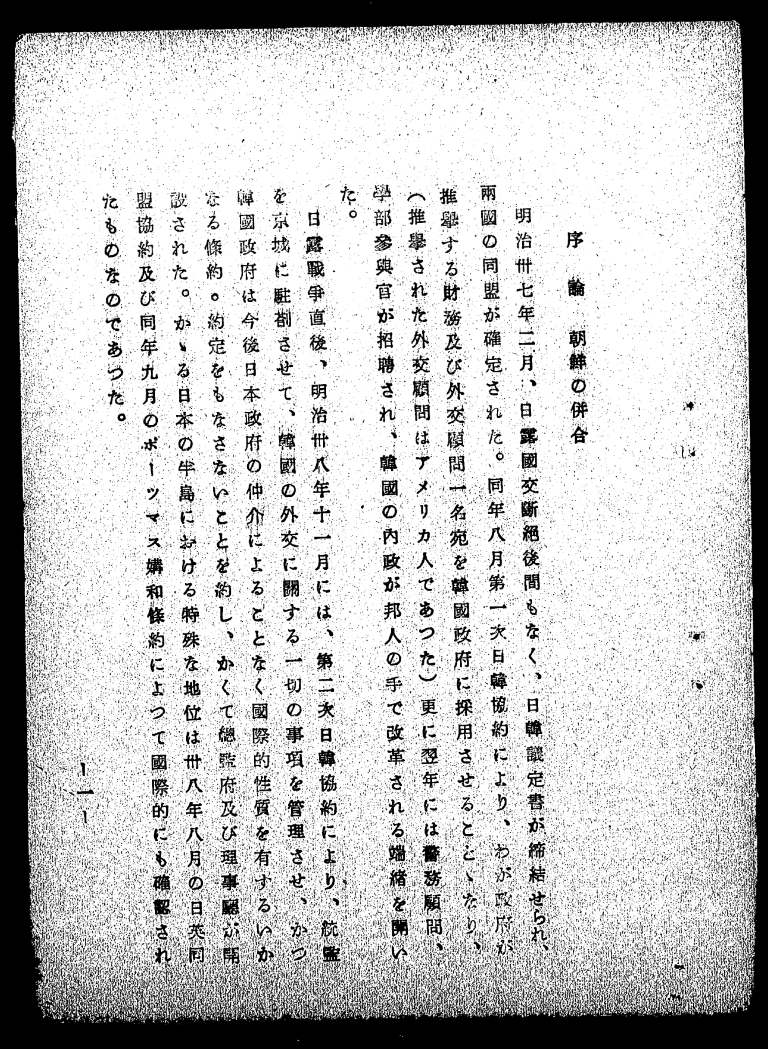 序論　朝鮮の併合
明治卅七年二月、日露國交斷絕後間もなく、日韓議定書が締結せられ、
兩國の同盟が確定された。同年八月第一次日韓協約により、わが政府が
推擧する財務及び外交顧問一名宛を韓國政府に採用させることゝなり、
（推擧された外交顧問はアメリカ人であつた）更に翌年には警務顧問、
學部參與官が招聘され、韓國の內政が邦人の手で改革される端緒を開い
た。
日露戰爭直後、明治卅八年十一月には、第二次日韓協約により、統監
を京城に駐箚させて、韓國の外交に關する一切の事項を管理させ、かつ
韓國政府は今後日本政府の仲介によることなく國際的性質を有するいか
なる條約。約定をもなさないことを約し、かくて總監府及び理事廳が開
設された。かゝる日本の半島における特殊な地位は卅八年八月の日英同
盟協約及び同年九月のポーツマス媾和條約によつて國際的にも確認され
たものなのであつた。
—一—